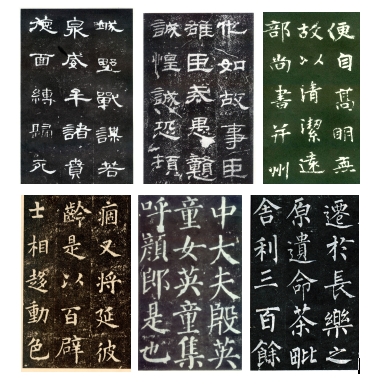 城野戰謀若
泉威牟諸賁
德面縛歸死
他如故事臣
雄臣戒愚戇
誠惶誠恐頓
便自高明無
故以清潔遠
部尚書并州
痼又將延彼
齡是以百辟
士相趍動色
中大夫殷英
童女英童集
呼顏郎是也
遷於長樂之
原遺命茶毗
舍利三百餘